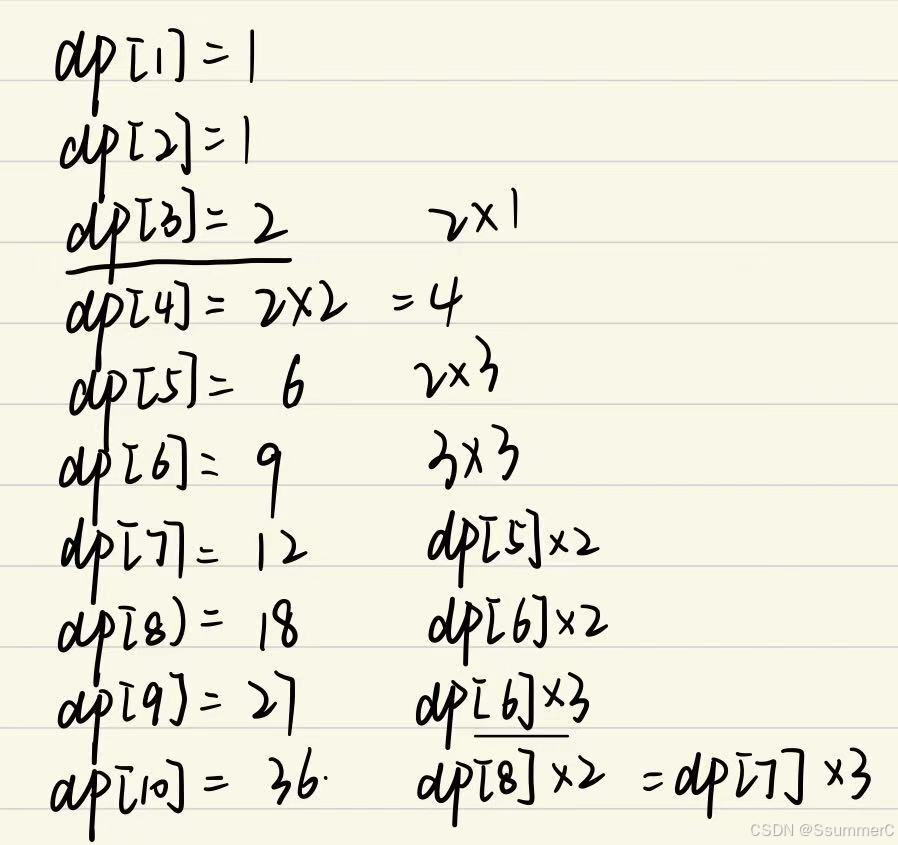 dp[1] = 1
dp[2] = 1
dp[3] = 2 2×1
dp[4] = 2×2 = 4
dp[5] = 6 2×3
dp[6] = 9 3×3
dp[7] = 12 dp[5]×2
dp[8) = 18 dp[6]×2
dp[9] = 27 dp[6]×3
dp[10] = 36. dp[8]×2 = dp[7]×3
CSDN @SsummerC